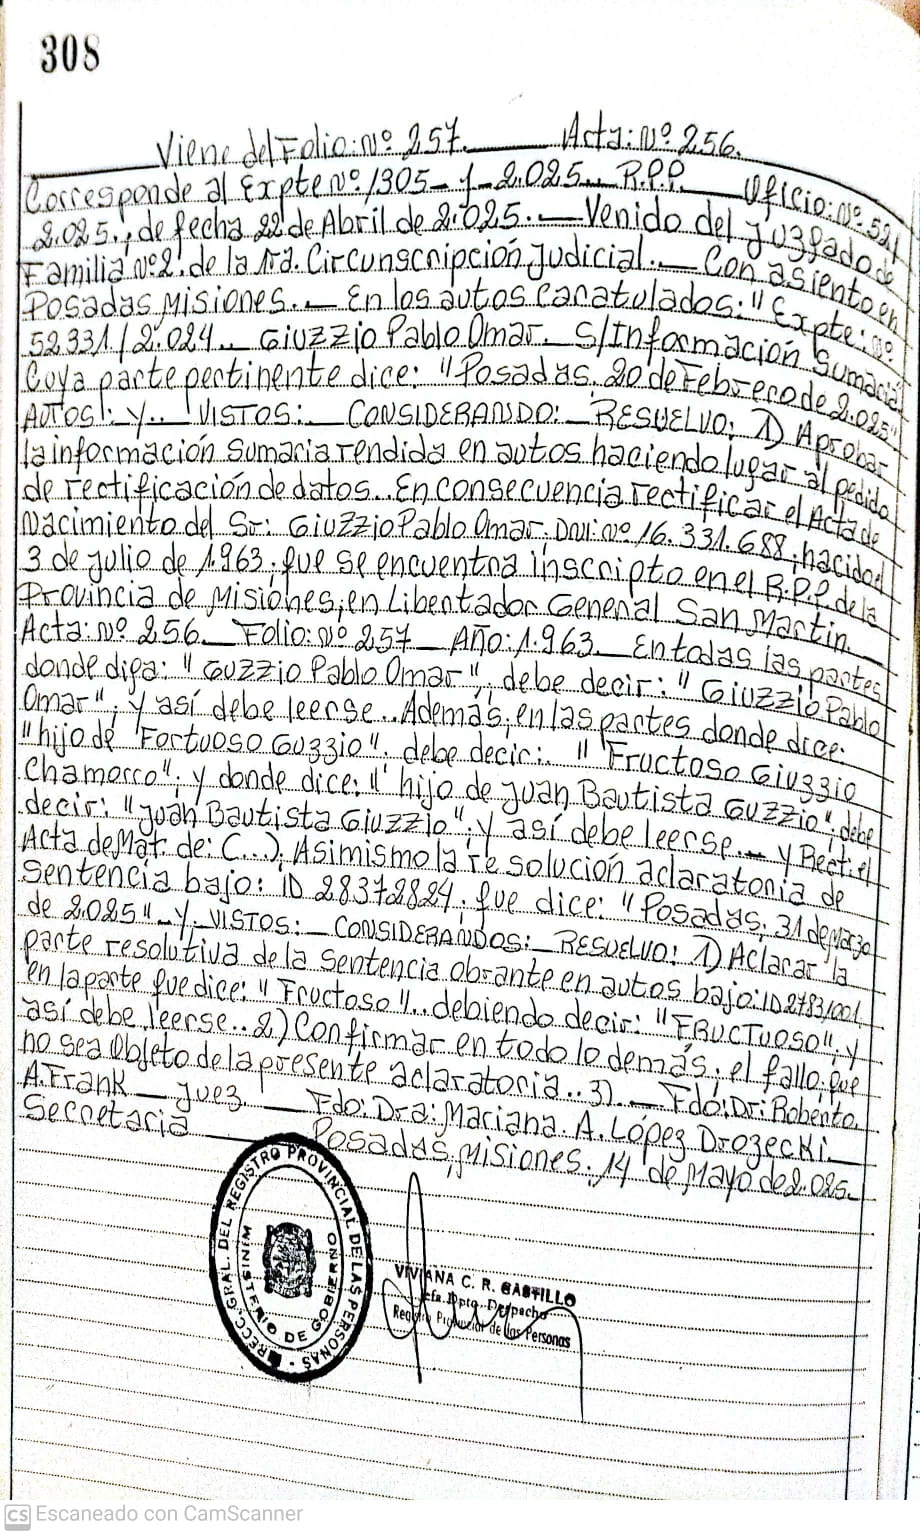 308
Viene del Folio: Nº 257. Acta: Nº 256.
Corresponde al Expte Nº 1305-Y-2.025.. R.P.P. Oficio: Nº 521
2.025., de fecha 22 de Abril de 2.025.- Venido del Juzgado de
Familia Nº 2. de la 1ra. Circunscripción Judicial.- Con asiento en
Posadas Misiones.- En los autos caratulados: "Expte: Nº
52331/2.024.. GIUZZIO Pablo Omar. S/Información Sumaria
Cuya parte pertinente dice: "Posadas. 20 de Febrero de 2.025"
AUTOS: Y.. VISTOS:- CONSIDERANDO:- RESUELVO: 1) Aprobar
la información Sumaria rendida en autos haciendo lugar al pedido
de rectificación de datos.. En consecuencia rectificar el Acta de
Nacimiento del Sr: GIUZZIO Pablo Omar. DNI: Nº 16.331.688, nacido el
3 de julio de 1.963, que se encuentra inscripto en el R.P.P. de la
Provincia de Misiones, en Libertador General San Martin.
Acta: Nº 256.- Folio: Nº 257- Año: 1.963.- En todas las partes
donde diga: "GUZZIO Pablo Omar", debe decir: "GIUZZIO Pablo
Omar"; y así debe leerse.. Además, en las partes donde dice:
"hijo de Fortuoso Guzzio". debe decir:. "Fructoso Giuzzio
Chamorro"; y donde dice: "hijo de Juan Bautista GUZZIO", debe
decir: "Juan Bautista GIUZZIO", y así debe leerse.- y Rect. el
Acta de Mat. de: (...). Asimismo la resolución aclaratoria de
Sentencia bajo: ID 28372824, que dice: "Posadas, 31 de marzo
de 2.025"- Y; VISTOS:- CONSIDERANDOS:- RESUELVO: 1) Aclarar la
parte resolutiva de la Sentencia obrante en autos bajo: ID
en la parte que dice: "Fructoso".. debiendo decir: "FRUCTUOSO", y
así debe leerse.. 2) Confirmar en todo lo demás, el fallo, que
no sea Objeto de la presente aclaratoria.. 3).- Fdo: Dr: Roberto.
A. Frank - Juez - Fdo: Dra: Mariana. A. López Drozecki.-
Secretaria - Posadas, Misiones. 14 de Mayo de 2.025.-
DIRECC. GRAL. DEL REGISTRO PROVINCIAL DE LAS PERSONAS
MINISTERIO DE GOBIERNO
VIVIANA C. R. CASTILLO
Jefa Dpto. Despacho
Registro Provincial de las Personas
CS Escaneado con CamScanner